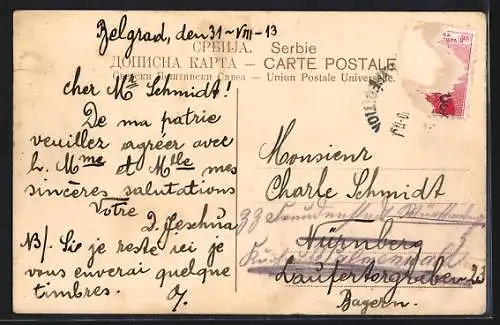 Belgrad, den 31-VIII-13
СРБИЈА. Serbie
ДОПИСНА КАРТА — CARTE POSTALE
Union Postale Universelle
cher Mr Schmidt!
De ma patrie
veuiller agréer avec
Mme et Mlle mes
sincères salutations
Votre
D. Jeschua
NB/. Si je reste ici je
vous enverai quelque
timbres.
J.
Monsieur
Charle Schmidt
zz Freudenstadt Württemberg
Nürnberg
Laufertorgraben 23
Bayern.